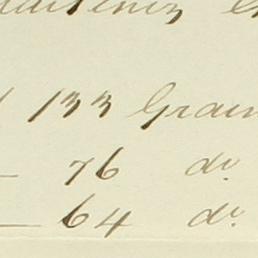 133 Grain
76 do.
64 do.